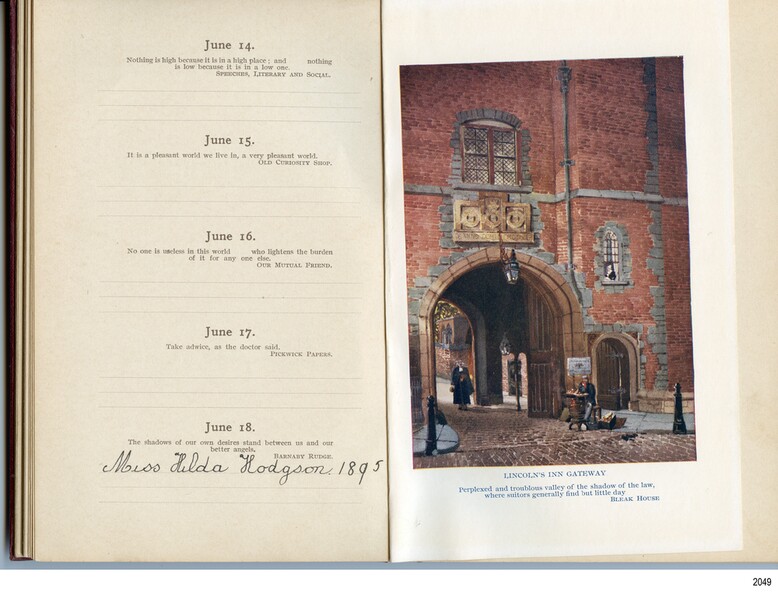 June 14.
Nothing is high because it is in a high place ; and nothing
is low because it is in a low one.
SPEECHES, LITERARY AND SOCIAL.
June 15.
It is a pleasant world we live in, a very pleasant world.
OLD CURIOSITY SHOP.
June 16.
No one is useless in this world who lightens the burden
of it for any one else.
OUR MUTUAL FRIEND.
June 17.
Take advice, as the doctor said.
PICKWICK PAPERS.
June 18.
The shadows of our own desires stand between us and our
better angels.
BARNABY RUDGE.
Miss Hilda Hodgson. 1895
LINCOLN'S INN GATEWAY
Perplexed and troublous valley of the shadow of the law,
where suitors generally find but little day
BLEAK HOUSE
2049